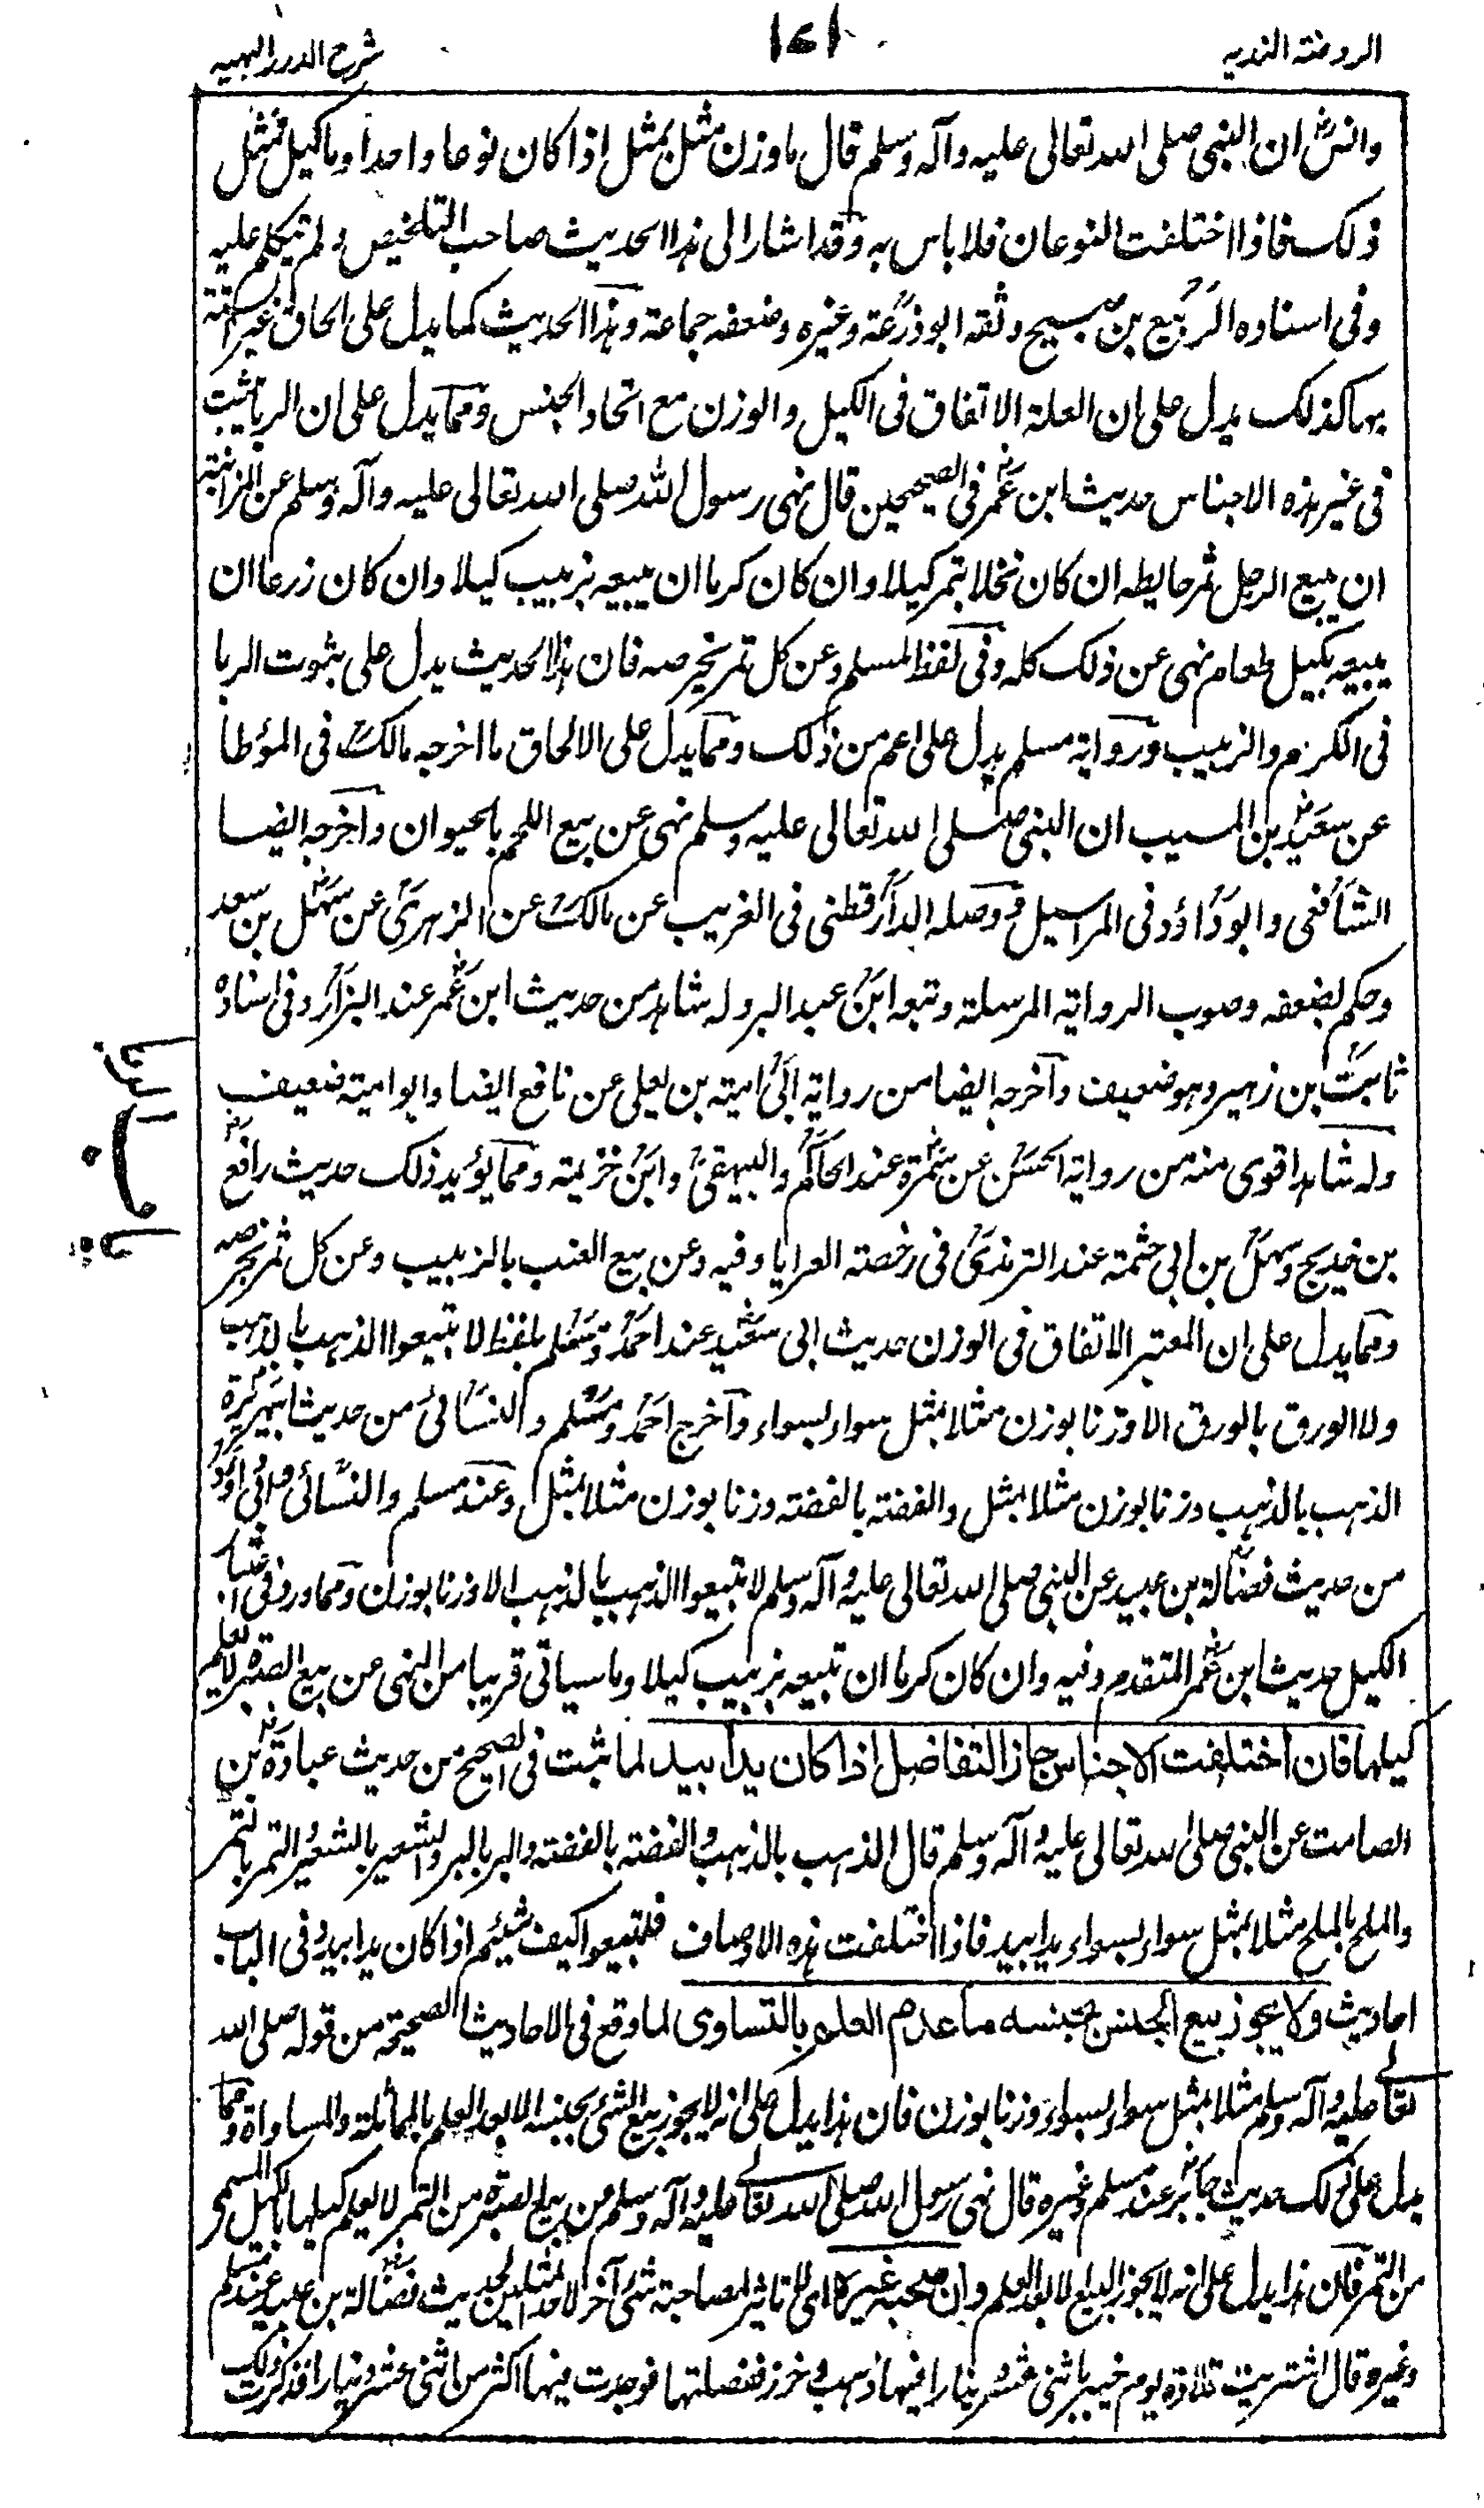 الروضة الندیه
۱۷۱
شرح الدرر البهیه
وانس ان النبی صلی الله تعالی علیه وآله وسلم قال ما وزن مثل بمثل اذا کان نوعا واحدا وما کیل فمثل
ذلک فاذا اختلفت النوعان فلا باس به وقد اشار الی هذا الحدیث صاحب التلخیص ولم یتکلم علیه
وفی اسناده الربیع بن صبیح وثقه ابو زرعة وغیره وضعفه جماعة وهذا الحدیث کما یدل علی الحاق غیر الستة
بها کذلک یدل علی ان العلة الاتفاق فی الکیل والوزن مع اتحاد الجنس ومما یدل علی ان الربا یثبت
فی غیر هذه الاجناس حدیث ابن عمر فی الصحیحین قال نهی رسول الله صلی الله تعالی علیه وآله وسلم عن المزابنة
ان یبیع الرجل ثمر حایطه ان کان نخلا بتمر کیلا وان کان کرما ان یبیعه بزبیب کیلا وان کان زرعا ان
یبیعه بکیل طعام نهی عن ذلک کله وفی لفظ لمسلم وعن کل ثمر بخرصه فان هذا الحدیث یدل علی ثبوت الربا
فی الکرم والزبیب وروایة مسلم یدل علی اعم من ذلک ومما یدل علی الالحاق ما اخرجه مالک فی الموطا
عن سعید بن المسیب ان النبی صلی الله تعالی علیه وسلم نهی عن بیع اللحم بالحیوان واخرجه ایضا
الشافعی وابو داؤد فی المراسیل ووصله الدارقطنی فی الغریب عن مالک عن الزهری عن سهل بن سعد
وحکم بضعفه وصوب الروایة المرسلة وتبعه ابن عبد البر وله شاهد من حدیث ابن عمر عند البزار وفی اسناده
ثابت بن زهیر وهو ضعیف واخرجه ایضا من روایة ابی امیة بن یعلی عن نافع ایضا وابو امیة ضعیف
وله شاهد اقوی منه من روایة الحسن عن سمرة عند الحاکم والبیهقی وابن خزیمة ومما یؤید ذلک حدیث رافع
بن خدیج وسهل بن ابی حثمة عند الترمذی فی رخصة العرایا وفیه وعن بیع العنب بالزبیب وعن کل ثمر بخرصه
ومما یدل علی ان المعتبر الاتفاق فی الوزن حدیث ابی سعید عند احمد ومسلم بلفظ لا تبیعوا الذهب بالذهب
ولا الورق بالورق الا وزنا بوزن مثلا بمثل سواء بسواء واخرج احمد ومسلم والنسائی من حدیث ابی هریرة
الذهب بالذهب وزنا بوزن مثلا بمثل والفضة بالفضة وزنا بوزن مثلا بمثل وعند مسلم والنسائی وابی داؤد
من حدیث فضالة بن عبید عن النبی صلی الله تعالی علیه وآله وسلم لا تبیعوا الذهب بالذهب الا وزنا بوزن ومما ورد فی اعتبار
الکیل حدیث ابن عمر المتقدم وفیه وان کان کرما ان تبیعه بزبیب کیلا وما سیاتی قریبا من النهی عن بیع الصبرة لا یعلم
کیلها فان اختلفت الاجناس جاز التفاضل اذا کان یدا بید لما ثبت فی الصحیح من حدیث عبادة بن
الصامت عن النبی صلی الله تعالی علیه وآله وسلم قال الذهب بالذهب والفضة بالفضة والبر بالبر والشعیر بالشعیر والتمر بالتمر
والملح بالملح مثلا بمثل سواء بسواء یدا بید فاذا اختلفت هذه الاوصاف فلتبیعوا کیف شئتم اذا کان یدا بید وفی الباب
احادیث ولا یجوز بیع الجنس بجنسه مع عدم العلم بالتساوی لما وقع فی الاحادیث الصحیحة من قوله صلی الله
تعالی علیه وآله وسلم مثلا بمثل سواء بسواء وزنا بوزن فان هذا یدل علی انه لا یجوز بیع الشئ بجنسه الا بعد العلم بالمماثلة والمساواة ومما
یدل علی ذلک حدیث جابر عند مسلم وغیره قال نهی رسول الله صلی الله تعالی علیه وآله وسلم عن بیع الصبرة من التمر لا یعلم کیلها بالکیل المسمی
من التمر فان هذا یدل علی انه لا یجوز البیع الا بعد العلم وان صحبه غیره ای لا تاثیر لمصاحبة شئ آخر لاحد المثلین لحدیث فضالة بن عبید عند مسلم
وغیره قال اشتریت قلادة یوم خیبر باثنی عشر دینارا فیها ذهب وخرز ففصلتها فوجدت فیها اکثر من اثنی عشر دینارا فذکرت ذلک